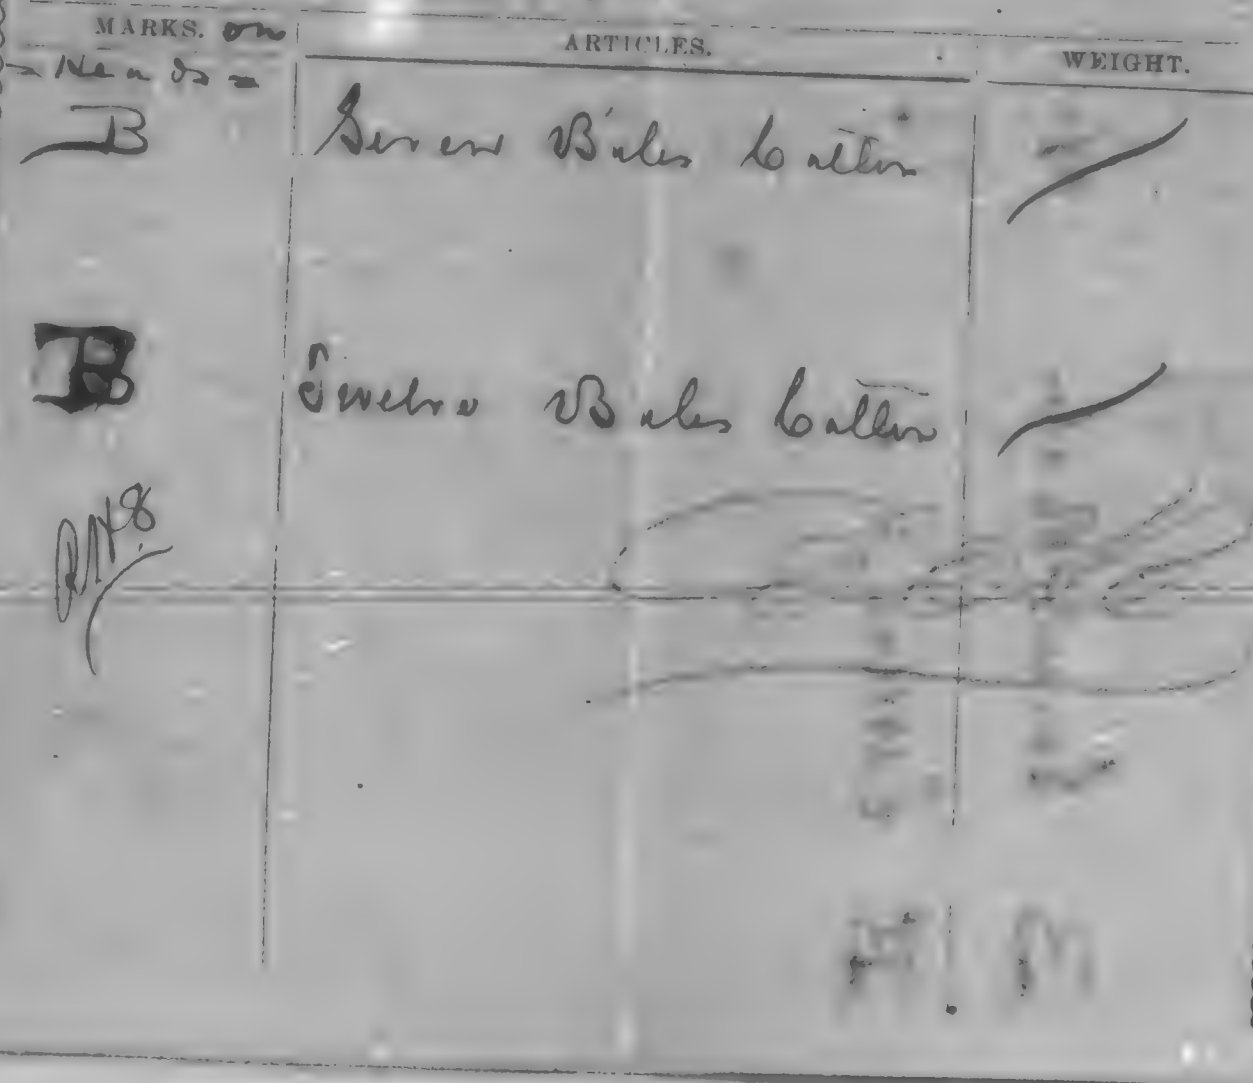 MARKS. on ARTICLES. WEIGHT.
- Heads -
B Seven Bales Cotton
B Twelve Bales Cotton